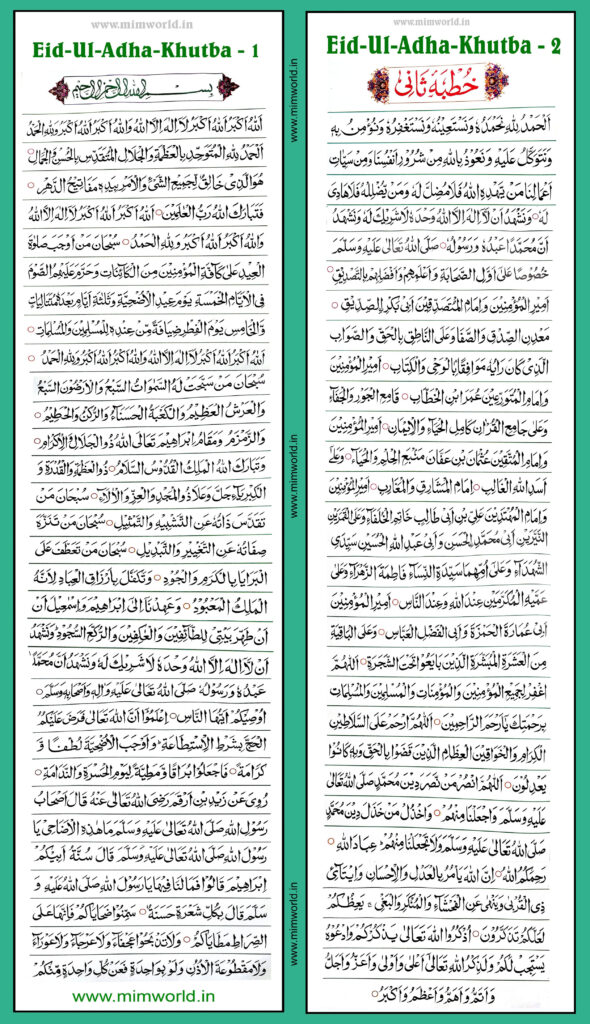 www.mimworld.in
Eid-Ul-Adha-Khutba - 1
بسم الله الرحمن الرحيم
اَللهُ اَكْبَرُ اَللهُ اَكْبَرُ لَا اِلٰهَ اِلَّا اللهُ وَاللهُ اَكْبَرُ اَللهُ اَكْبَرُ وَلِلّٰهِ الْحَمْدُ
اَلْحَمْدُ لِلّٰهِ الْمُتَوَحِّدِ بِالْعَظَمَةِ وَالْجَلَالِ الْمُتَقَدِّسِ بِالْحُسْنِ وَالْجَمَالِ
هُوَ الَّذِىْ خَالِقٌ لِجَمِيْعِ الشَّىْءِ وَالْاَمْرِ بِيَدِهٖ مَفَاتِيْحُ الدَّهْرِ
فَتَبَارَكَ اللهُ رَبُّ الْعٰلَمِيْنَ اَللهُ اَكْبَرُ اَللهُ اَكْبَرُ لَا اِلٰهَ اِلَّا اللهُ
وَاللهُ اَكْبَرُ اَللهُ اَكْبَرُ وَلِلّٰهِ الْحَمْدُ سُبْحَانَ مَنْ اَوْجَبَ صَلٰوةَ
الْعِيْدِ عَلٰى كَافَّةِ الْمُؤْمِنِيْنَ مِنَ الْكَائِنَاتِ وَحَرَّمَ عَلَيْهِمُ الصَّوْمَ
فِى الْاَيَّامِ الْخَمْسَةِ يَوْمِ عِيْدِ الْاَضْحِيَّةِ وَثَلٰثَةِ اَيَّامٍ بَعْدَهُ مُتَتَالِيَاتٍ
وَالْخَامِسِ يَوْمَ الْفِطْرِ ضِيَافَةً مِّنْ عِنْدِهٖ لِلْمُسْلِمِيْنَ وَالْمُسْلِمَاتِ
اَللهُ اَكْبَرُ اَللهُ اَكْبَرُ لَا اِلٰهَ اِلَّا اللهُ وَاللهُ اَكْبَرُ اَللهُ اَكْبَرُ وَلِلّٰهِ الْحَمْدُ
سُبْحَانَ مَنْ سَبَّحَتْ لَهُ السَّمٰوٰتُ السَّبْعُ وَالْاَرْضُوْنَ السَّبْعُ
وَالْعَرْشُ الْعَظِيْمُ وَالْكَعْبَةُ الْحَسَنَاءُ وَالرُّكْنُ وَالْحَطِيْمُ
وَالزَّمْزَمُ وَمَقَامُ اِبْرَاهِيْمَ تَعَالَى اللهُ ذُو الْجَلَالِ وَالْاِكْرَامِ
وَتَبَارَكَ اللهُ الْمَلِكُ الْقُدُّوْسُ السَّلَامُ ذُو الْعَظَمَةِ وَالْقُدْرَةِ وَ
الْكِبْرِيَاءِ جَلَّ وَعَلَا ذُو الْمَجْدِ وَالْعِزِّ وَالْاٰلَاءِ سُبْحَانَ مَنْ
تَقَدَّسَ ذَاتُهُ عَنِ التَّشْبِيْهِ وَالتَّمْثِيْلِ سُبْحَانَ مَنْ تَنَزَّهَ
صِفَاتُهُ عَنِ التَّغْيِيْرِ وَالتَّبْدِيْلِ سُبْحَانَ مَنْ تَعَطَّفَ عَلَى
الْبَرَايَا بِالْكَرَمِ وَالْجُوْدِ وَتَكَفَّلَ بِاَرْزَاقِ الْعِبَادِ لِاَنَّهُ
الْمَلِكُ الْمَعْبُوْدُ وَعَهِدْنَا اِلٰى اِبْرَاهِيْمَ وَاِسْمٰعِيْلَ اَنْ
اَنْ طَهِّرَ بَيْتِىَ لِلطَّائِفِيْنَ وَالْعٰكِفِيْنَ وَالرُّكَّعِ السُّجُوْدِ وَنَشْهَدُ
اَنْ لَا اِلٰهَ اِلَّا اللهُ وَحْدَهُ لَا شَرِيْكَ لَهُ وَنَشْهَدُ اَنَّ مُحَمَّدًا
عَبْدُهُ وَرَسُوْلُهُ صَلَّى اللهُ تَعَالٰى عَلَيْهِ وَاٰلِهٖ وَاَصْحَابِهٖ وَسَلَّمَ
اُوْصِيْكُمْ اَيُّهَا النَّاسُ اِعْلَمُوْا اَنَّ اللهَ تَعَالٰى فَرَضَ عَلَيْكُمُ
الْحَجَّ بِشَرْطِ الْاِسْتِطَاعَةِ وَاَوْجَبَ الْاُضْحِيَّةَ لُطْفًا وَّ
كَرَامَةً فَاجْعَلُوْا بُرَاقًا وَّمَطِيَّةً لِيَوْمِ الْحَسْرَةِ وَالنَّدَامَةِ
رُوِىَ عَنْ زَيْدِ بْنِ اَرْقَمَ رَضِىَ اللهُ تَعَالٰى عَنْهُ قَالَ اَصْحَابُ
رَسُوْلِ اللهِ صَلَّى اللهُ تَعَالٰى عَلَيْهِ وَسَلَّمَ مَا هٰذِهِ الْاَضَاحِىُّ يَا
رَسُوْلَ اللهِ صَلَّى اللهُ تَعَالٰى عَلَيْهِ وَسَلَّمَ قَالَ سُنَّةُ اَبِيْكُمْ
اِبْرَاهِيْمَ قَالُوْا فَمَا لَنَا فِيْهَا يَا رَسُوْلَ اللهِ صَلَّى اللهُ عَلَيْهِ وَ
سَلَّمَ قَالَ بِكُلِّ شَعْرَةٍ حَسَنَةٌ سَمِّنُوْا ضَحَايَاكُمْ فَاِنَّهَا عَلَى
الصِّرَاطِ مَطَايَاكُمْ وَلَا تَذْبَحُوْا عَجْفَاءَ وَلَا عَرْجَاءَ وَلَا عَوْرَاءَ
وَلَا مَقْطُوْعَةَ الْاُذُنِ وَلَوْ بِوَاحِدَةٍ فَعَنْ كُلِّ وَاحِدَةٍ مِّنْكُمْ
www.mimworld.in
www.mimworld.in
www.mimworld.in
www.mimworld.in
www.mimworld.in
Eid-Ul-Adha-Khutba - 2
خُطْبَهٔ ثَانِیْ
اَلْحَمْدُ لِلّٰهِ نَحْمَدُهُ وَنَسْتَعِيْنُهُ وَنَسْتَغْفِرُهُ وَنُؤْمِنُ بِهٖ
وَنَتَوَكَّلُ عَلَيْهِ وَنَعُوْذُ بِاللهِ مِنْ شُرُوْرِ اَنْفُسِنَا وَمِنْ سَيِّاٰتِ
اَعْمَالِنَا مَنْ يَّهْدِهِ اللهُ فَلَا مُضِلَّ لَهُ وَمَنْ يُّضْلِلْهُ فَلَا هَادِىَ
لَهُ وَنَشْهَدُ اَنْ لَا اِلٰهَ اِلَّا اللهُ وَحْدَهُ لَا شَرِيْكَ لَهُ وَنَشْهَدُ
اَنَّ مُحَمَّدًا عَبْدُهُ وَرَسُوْلُهُ صَلَّى اللهُ تَعَالٰى عَلَيْهِ وَسَلَّمَ
خُصُوْصًا عَلٰى اَوَّلِ الصَّحَابَةِ وَاَعْلَمِهِمْ وَاَفْضَلِهِمْ بِالتَّصْدِيْقِ
اَمِيْرِ الْمُؤْمِنِيْنَ وَاِمَامِ الْمُتَصَدِّقِيْنَ اَبِىْ بَكْرِ الصِّدِّيْقِ
مَعْدِنِ الصِّدْقِ وَالصَّفَا وَعَلَى النَّاطِقِ بِالْحَقِّ وَالصَّوَابِ
الَّذِىْ كَانَ رَاْيُهُ مُوَافِقًا بِالْوَحْىِ وَالْكِتَابِ اَمِيْرِ الْمُؤْمِنِيْنَ
وَاِمَامِ الْمُتَوَرِّعِيْنَ عُمَرَ ابْنِ الْخَطَّابِ قَامِعِ الْجَوْرِ وَالْجَفَاءِ
وَعَلٰى جَامِعِ الْقُرْاٰنِ كَامِلِ الْحَيَاءِ وَالْاِيْمَانِ اَمِيْرِ الْمُؤْمِنِيْنَ
وَاِمَامِ الْمُتَّقِيْنَ عُثْمَانَ بْنِ عَفَّانَ مَنْبَعِ الْحِلْمِ وَالْحَيَاءِ وَعَلٰى
اَسَدِ اللهِ الْغَالِبِ اِمَامِ الْمَشَارِقِ وَالْمَغَارِبِ اَمِيْرِ الْمُؤْمِنِيْنَ
وَاِمَامِ الْمُهْتَدِيْنَ عَلِىِّ بْنِ اَبِىْ طَالِبٍ خَاتَمِ الْخُلَفَاءِ وَعَلَى الْقَمَرَيْنِ
النَّيِّرَيْنِ اَبِىْ مُحَمَّدِ الْحَسَنِ وَاَبِىْ عَبْدِ اللهِ الْحُسَيْنِ سَيِّدَىِ
الشُّهَدَاءِ وَعَلٰى اُمِّهِمَا سَيِّدَةِ النِّسَاءِ فَاطِمَةَ الزَّهْرَاءِ وَعَلٰى
عَمَّيْهِ الْمُكَرَّمَيْنِ عِنْدَ اللهِ وَعِنْدَ النَّاسِ اَمِيْرِ الْمُؤْمِنِيْنَ
اَبِىْ عُمَارَةَ الْحَمْزَةِ وَاَبِى الْفَضْلِ الْعَبَّاسِ وَعَلَى الْبَاقِيَةِ
مِنَ الْعَشَرَةِ الْمُبَشَّرَةِ الَّذِيْنَ بَايَعُوْا تَحْتَ الشَّجَرَةِ اَللّٰهُمَّ
اغْفِرْ لِجَمِيْعِ الْمُؤْمِنِيْنَ وَالْمُؤْمِنَاتِ وَالْمُسْلِمِيْنَ وَالْمُسْلِمَاتِ
بِرَحْمَتِكَ يَا اَرْحَمَ الرَّاحِمِيْنَ اَللّٰهُمَّ ارْحَمْ عَلَى السَّلَاطِيْنِ
الْكِرَامِ وَالْخَوَاقِيْنَ الْعِظَامِ الَّذِيْنَ قَضَوْا بِالْحَقِّ وَبِهٖ كَانُوْا
يَعْدِلُوْنَ اَللّٰهُمَّ انْصُرْ مَنْ نَصَرَ دِيْنَ مُحَمَّدٍ صَلَّى اللهُ تَعَالٰى
عَلَيْهِ وَسَلَّمَ وَاجْعَلْنَا مِنْهُمْ وَاخْذُلْ مَنْ خَذَلَ دِيْنَ مُحَمَّدٍ
صَلَّى اللهُ تَعَالٰى عَلَيْهِ وَسَلَّمَ وَلَا تَجْعَلْنَا مِنْهُمْ عِبَادَ اللهِ
رَحِمَكُمُ اللهُ اِنَّ اللهَ يَاْمُرُ بِالْعَدْلِ وَالْاِحْسَانِ وَاِيْتَاءِ
ذِى الْقُرْبٰى وَيَنْهٰى عَنِ الْفَحْشَاءِ وَالْمُنْكَرِ وَالْبَغْىِ يَعِظُكُمْ
لَعَلَّكُمْ تَذَكَّرُوْنَ اُذْكُرُوا اللهَ تَعَالٰى يَذْكُرْكُمْ وَادْعُوْهُ
يَسْتَجِبْ لَكُمْ وَلَذِكْرُ اللهِ تَعَالٰى اَعْلٰى وَاَوْلٰى وَاَعَزُّ وَاَجَلُّ
وَاَتَمُّ وَاَهَمُّ وَاَعْظَمُ وَاَكْبَرُ